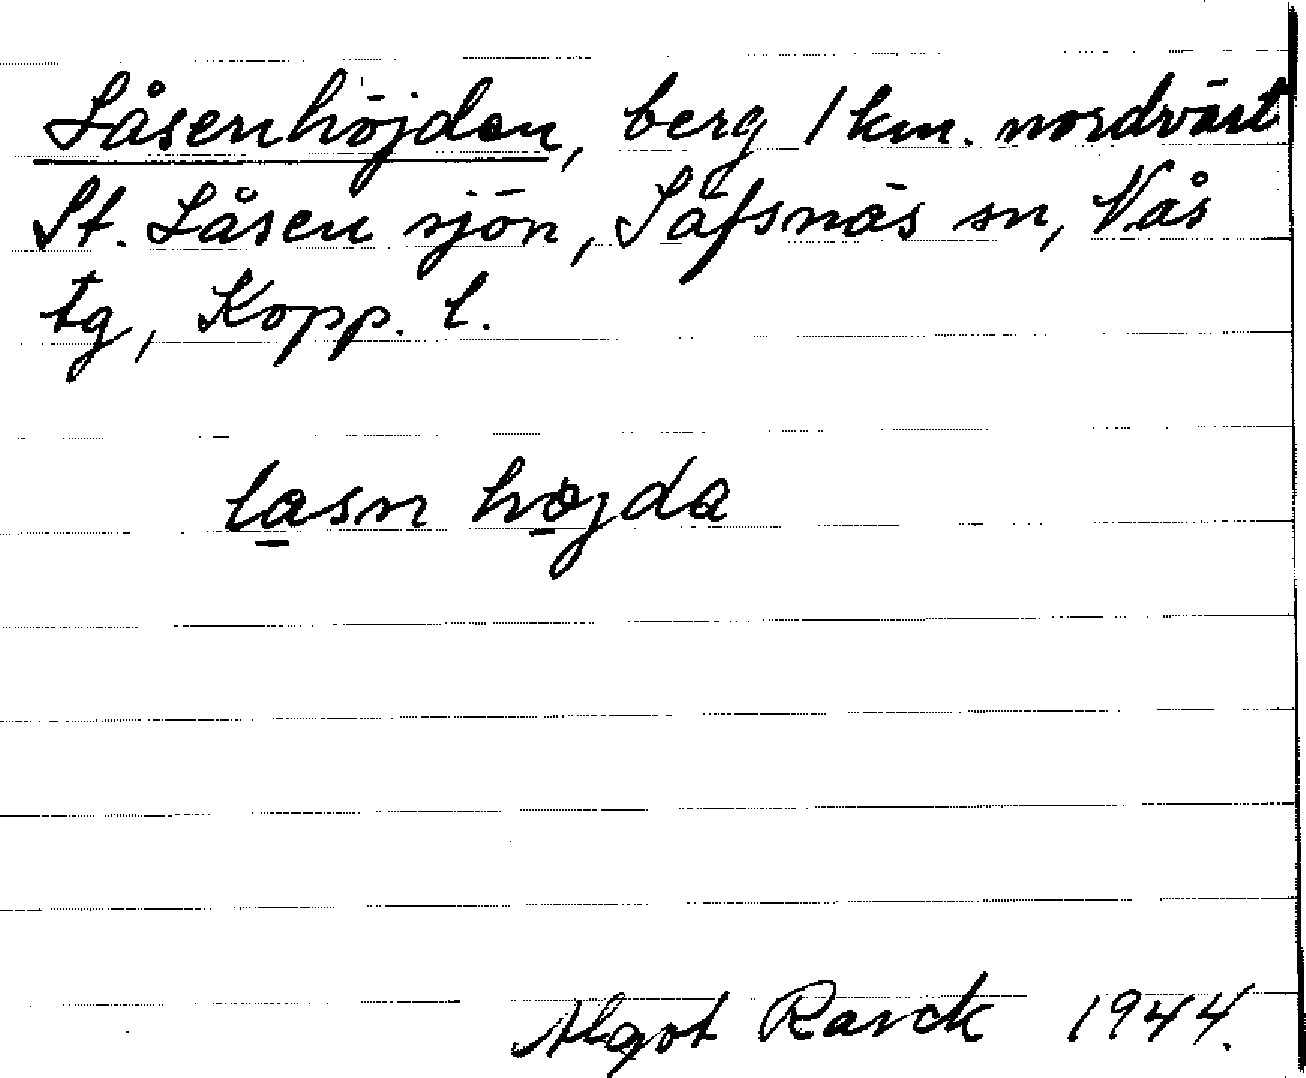 Låsenhöjden, berg 1 km. nordväst
St. Låsen sjön, Säfsnäs sn, Nås
tg, Kopp. l.
lasn höjda
Algot Rarck 1944.